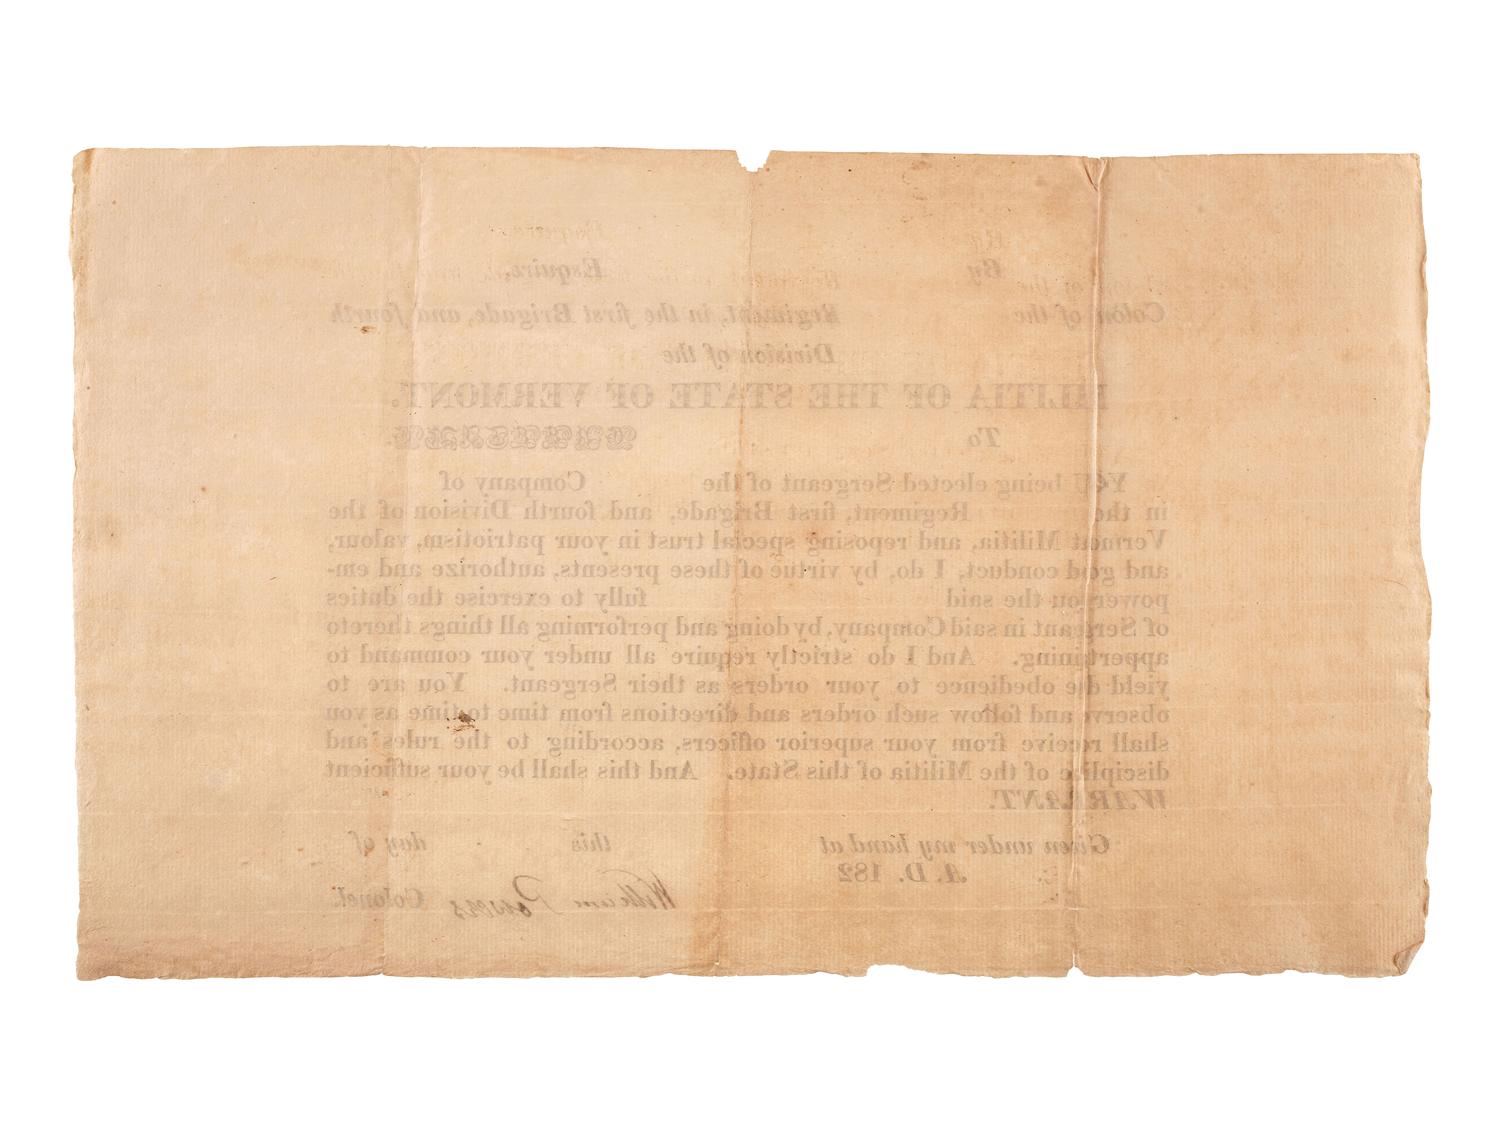 By Esquire.
Colon of the Regiment, in the first Brigade, and fourth
Division of the
MILITIA OF THE STATE OF VERMONT.
To
YOU being elected Sergeant of the Company of
in the Regiment, first Brigade, and fourth Division of the
Vermont Militia, and reposing special trust in your patriotism, valour,
and good conduct, I do, by virtue of these presents, authorize and em-
power you the said fully to exercise the duties
of Sergeant in said Company, by doing and performing all things thereto
appertaining. And I do strictly require all under your command to
yield due obedience to your orders as their Sergeant. You are to
observe and follow such orders and directions from time to time as you
shall receive from your superior officers, according to the rules and
discipline of the Militia of this State. And this shall be your sufficient
WARRANT.
Given under my hand at this day of
A. D. 182
William Powers Colonel.